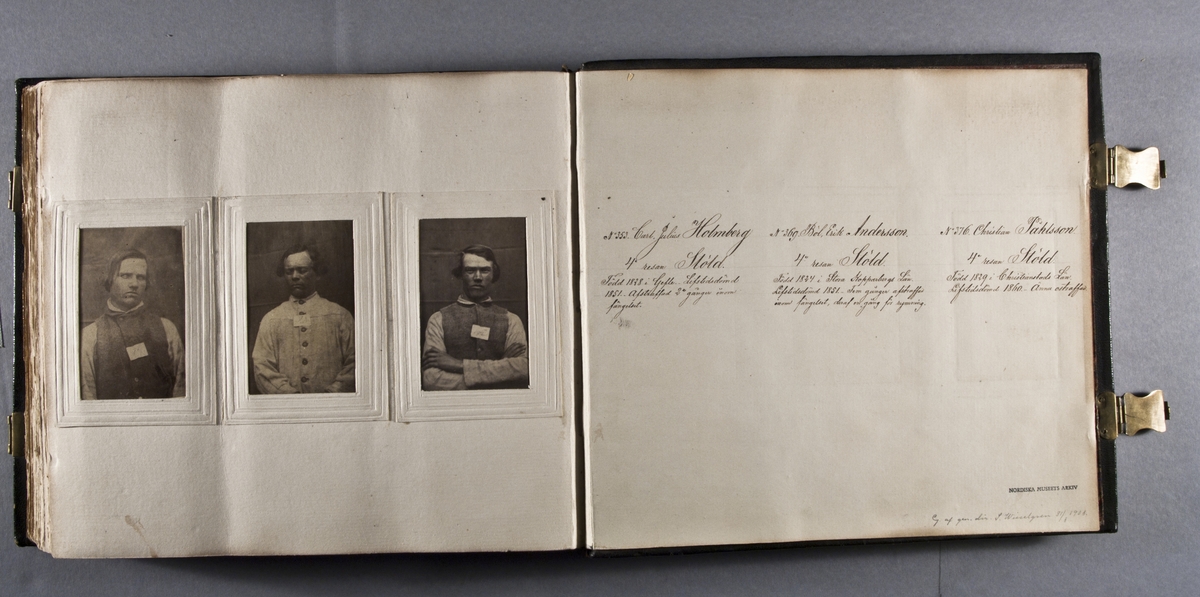 N:o 353. Carl Julius Holmberg
4:e resan Stöld.
Född 1828 i Gefle. Lifstidsdömd
1851. Afstraffad 2:ne gånger inom
fängelset.
N:o 369. Bol. Erik Andersson.
4:e resan Stöld
Född 1824 i Stora Kopparbergs Län.
Lifstidsdömd 1851. Fem gånger afstraffad
inom fängelset, deraf en gång för rymning.
N:o 376. Christian Påhlsson
4:e resan Stöld
Född 1829 i Christianstads Län.
Lifstidsdömd 1860. Ännu ostraffad
NORDISKA MUSEETS ARKIV
af gen. dir. S. Wieselgren